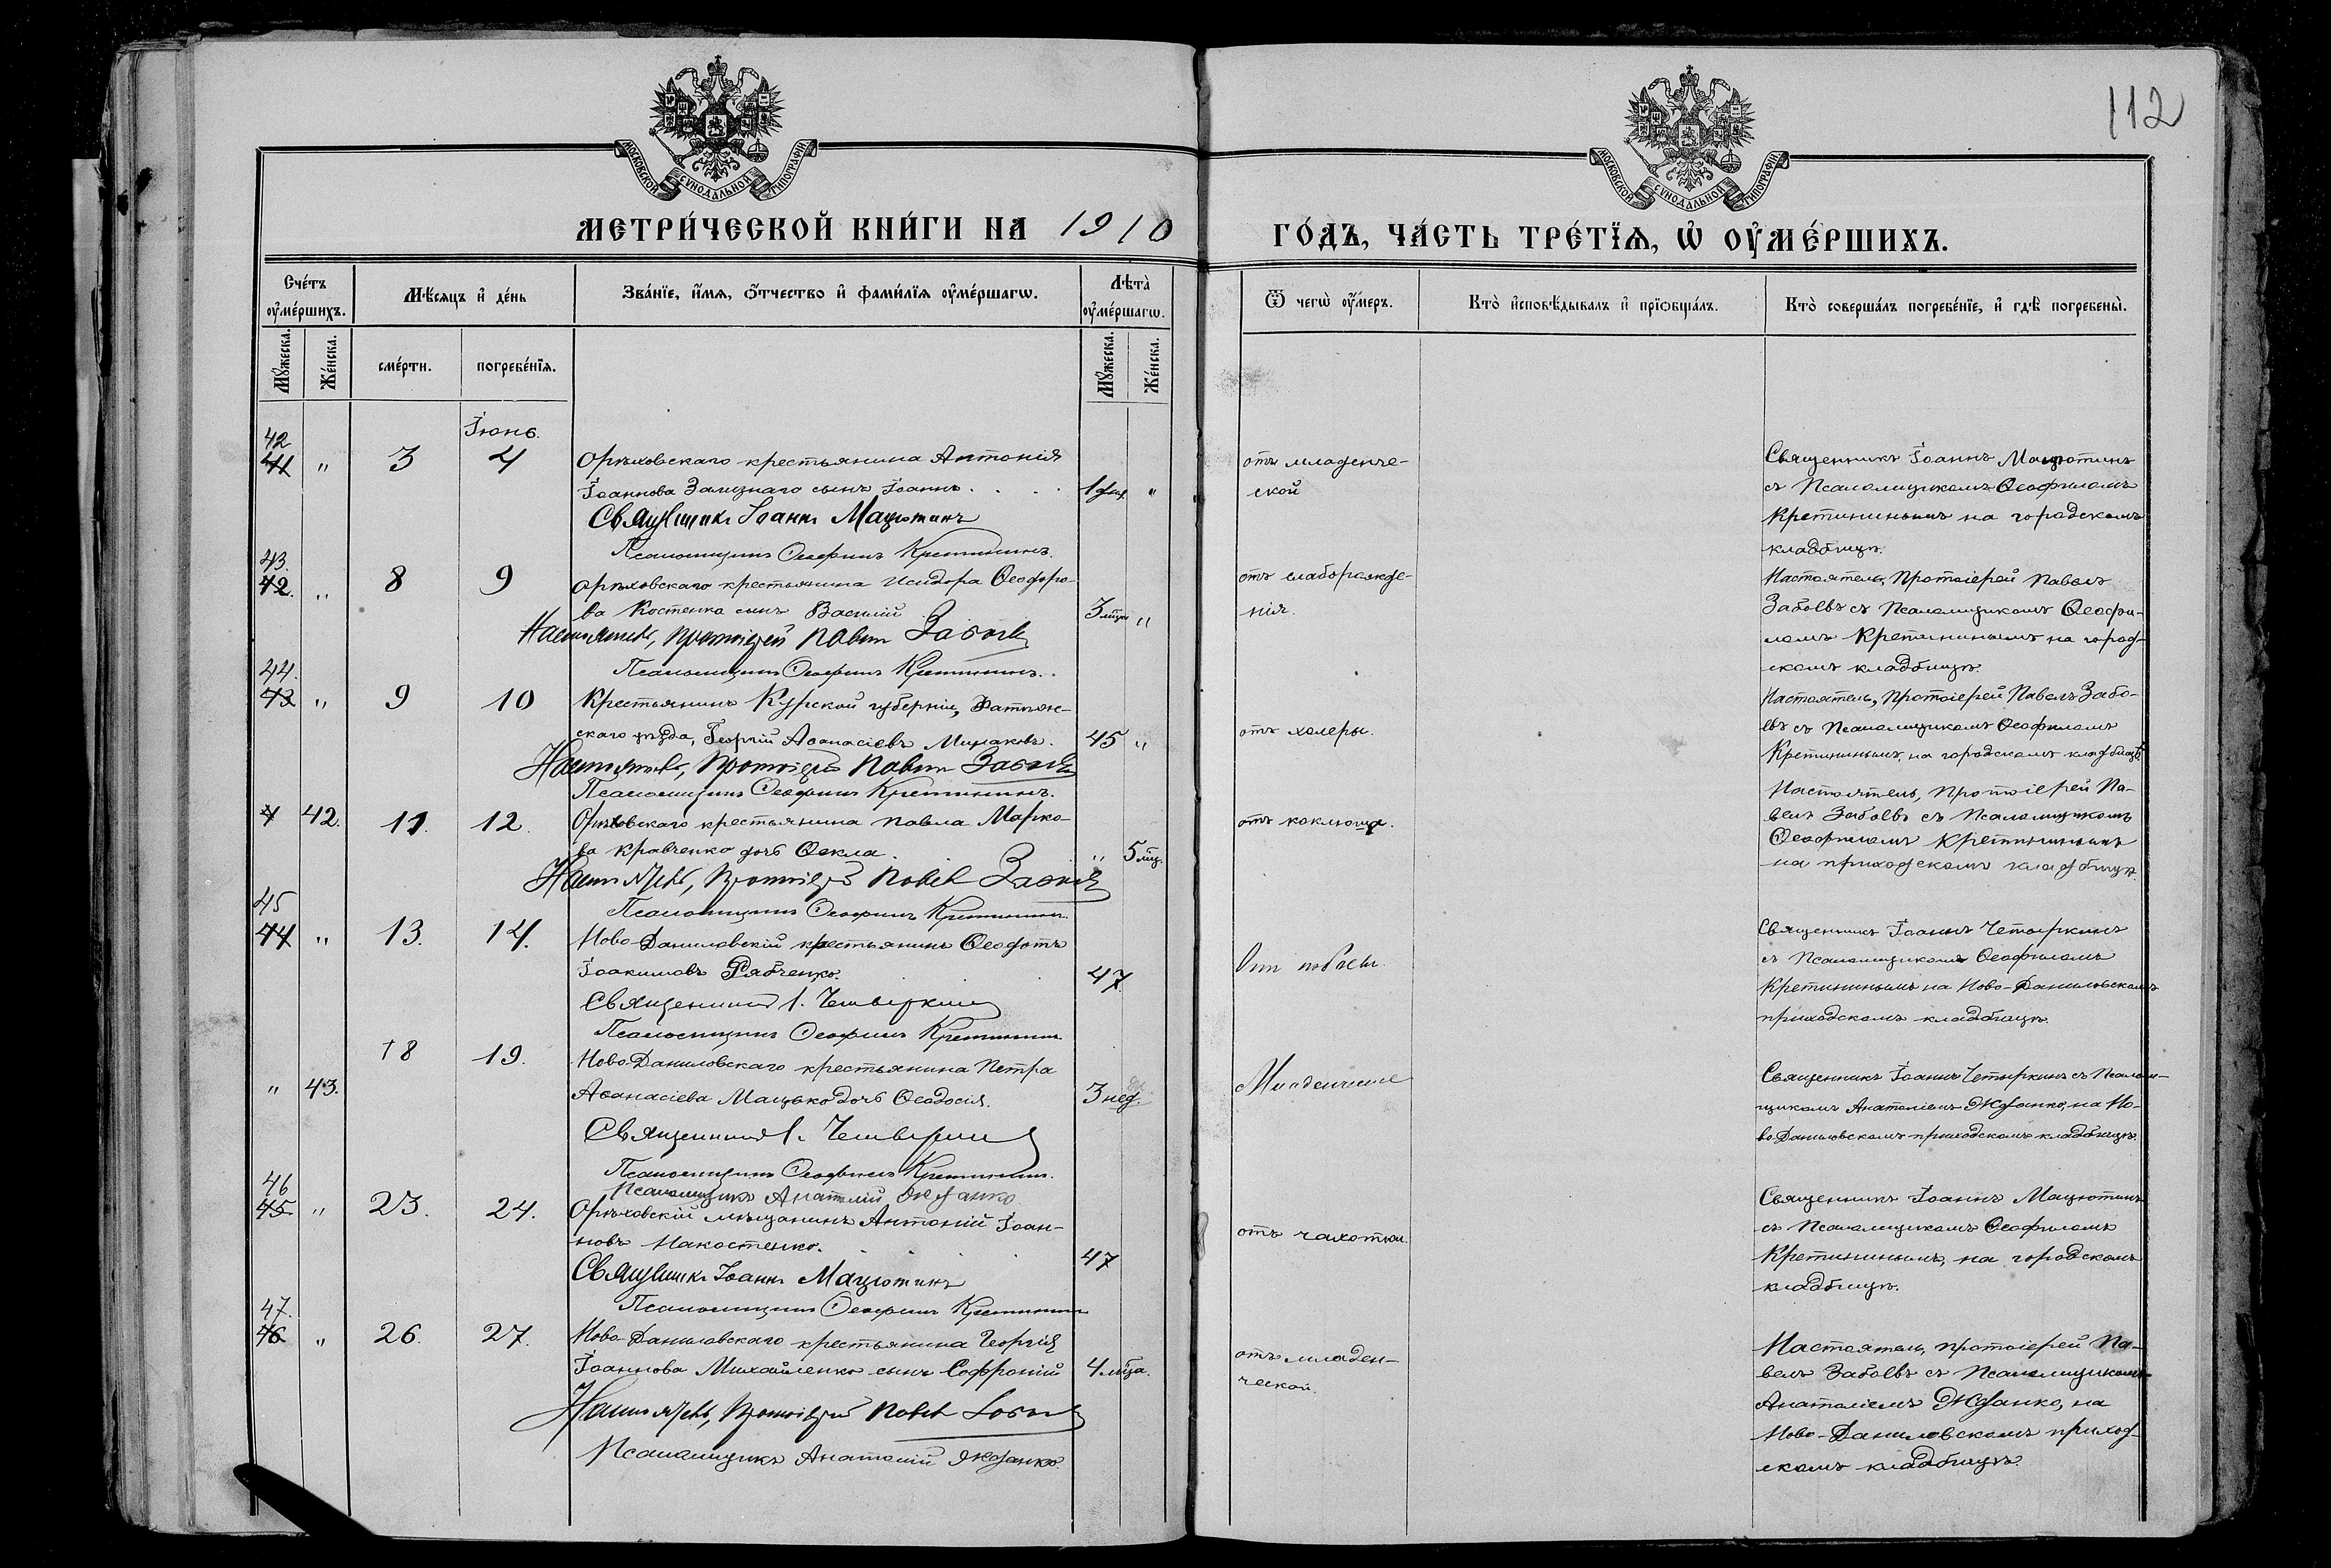 112
МОСКОВСКОЙ СУНОДАЛЬНОЙ ТИПОГРАФІИ
МОСКОВСКОЙ СУНОДАЛЬНОЙ ТИПОГРАФІИ
МЕТРИ́ЧЕСКОЙ КНИ́ГИ НА 1910
ГО́ДЪ, ЧА́СТЬ ТРЕ́ТЇѦ, Ѡ҆ ОУ҆МЕ́РШИХЪ.
Сче́тъ оу҆ме́ршихъ.
Мѣ́сяцъ и҆ де́нь
Зва́нїе, и҆́мѧ, ѻ҆́тчество и҆ фами́лїѧ оу҆ме́ршагѡ.
Лѣ́та оу҆ме́ршагѡ.
Ѿ чегѡ̀ оу҆́меръ.
Кто̀ и҆сповѣ́дывалъ и҆ прїѻбща́лъ.
Кто̀ соверша́лъ погребе́нїе, и҆ гдѣ̀ погребены̀.
Мꙋ́жеска.
Же́нска.
сме́рти.
погребе́нїѧ.
Мꙋ́жеска.
Же́нска.
Іюнь.
42
41 " 3 4 Орѣховскаго крестьянина Антонія
Іоаннова Зализнаго сынъ Іоаннъ. 1 "
Священникъ Іоаннъ Мацютинъ
Псаломщикъ Ѳеофилъ Кретининъ.
отъ младенче-
ской
Священникъ Іоаннъ Мацютинъ
съ Псаломщикомъ Ѳеофиломъ
Кретининымъ на городскомъ
кладбищѣ.
43.
42. " 8 9 Орѣховскаго крестьянина Исидора Ѳеодоро-
ва Костенка сынъ Василій 3 мца "
Настоятель, Протоіерей Павелъ Забоевъ
Псаломщикъ Ѳеофилъ Кретининъ.
отъ слаборожде-
нія.
Настоятель, Протоіерей Павелъ
Забоевъ съ Псаломщикомъ Ѳеофи-
ломъ Кретининымъ на город-
скомъ кладбищѣ.
44.
43 " 9 10 Крестьянинъ Курской губерніи, Фатѣж-
скаго уѣзда, Георгій Аѳанасіевъ Минаковъ. 45 "
Настоятель, Протоіерей Павелъ Забоевъ
Псаломщикъ Ѳеофилъ Кретининъ.
отъ холеры.
Настоятель, Протоіерей Павелъ Забо-
евъ съ Псаломщикомъ Ѳеофиломъ
Кретининымъ, на городскомъ кладбищѣ.
42. 11. 12. Орѣховскаго крестьянина Павла Марко-
ва Кравченко дочь Ѳекла. " 5 мц.
Настоятель, Протоіерей Павелъ Забоевъ
Псаломщикъ Ѳеофилъ Кретининъ.
отъ коклюша.
Настоятель, Протоіерей Па-
велъ Забоевъ съ Псаломщикомъ
Ѳеофиломъ Кретининымъ
на приходскомъ кладбищѣ.
45
44 " 13. 14. Ново-Даниловскій крестьянинъ Ѳеодотъ
Іоакимовъ Рябченко. 47
Священникъ І. Четыркинъ
Псаломщикъ Ѳеофилъ Кретининъ.
Отъ
Священникъ Іоаннъ Четыркинъ
съ Псаломщикомъ Ѳеофиломъ
Кретининымъ на Ново-Даниловскомъ
приходскомъ кладбищѣ.
18 19. Ново-Даниловскаго крестьянина Петра
" 43. Аѳанасіева Мацько дочь Ѳеодосія. 3 нед.
Священникъ І. Четыркинъ
Псаломщикъ Ѳеофилъ Кретининъ.
Псаломщикъ Анатолій Жданко
Священникъ Іоаннъ Четыркинъ съ Псалом-
щикомъ Анатоліемъ Жданко, на Но-
во-Даниловскомъ приходскомъ кладбищѣ.
46
45 " 23. 24. Орѣховскій мѣщанинъ Антоній Іоан-
новъ Накостенко. 47
Священникъ Іоаннъ Мацютинъ
Псаломщикъ Ѳеофилъ Кретининъ
отъ чахотки.
Священникъ Іоаннъ Мацютинъ
съ Псаломщикомъ Ѳеофиломъ
Кретининымъ, на городскомъ
кладбищѣ.
47.
46 " 26. 27. Ново-Даниловскаго крестьянина Георгія
Іоаннова Михайленко сынъ Софроній 4 мца.
Настоятель, Протоіерей Павелъ Забоевъ
Псаломщикъ Анатолій Жданко.
отъ младен-
ческой.
Настоятель, протоіерей Па-
велъ Забоевъ съ Псаломщикомъ
Анатоліемъ Жданко, на
Ново-Даниловскомъ приход-
скомъ кладбищѣ.